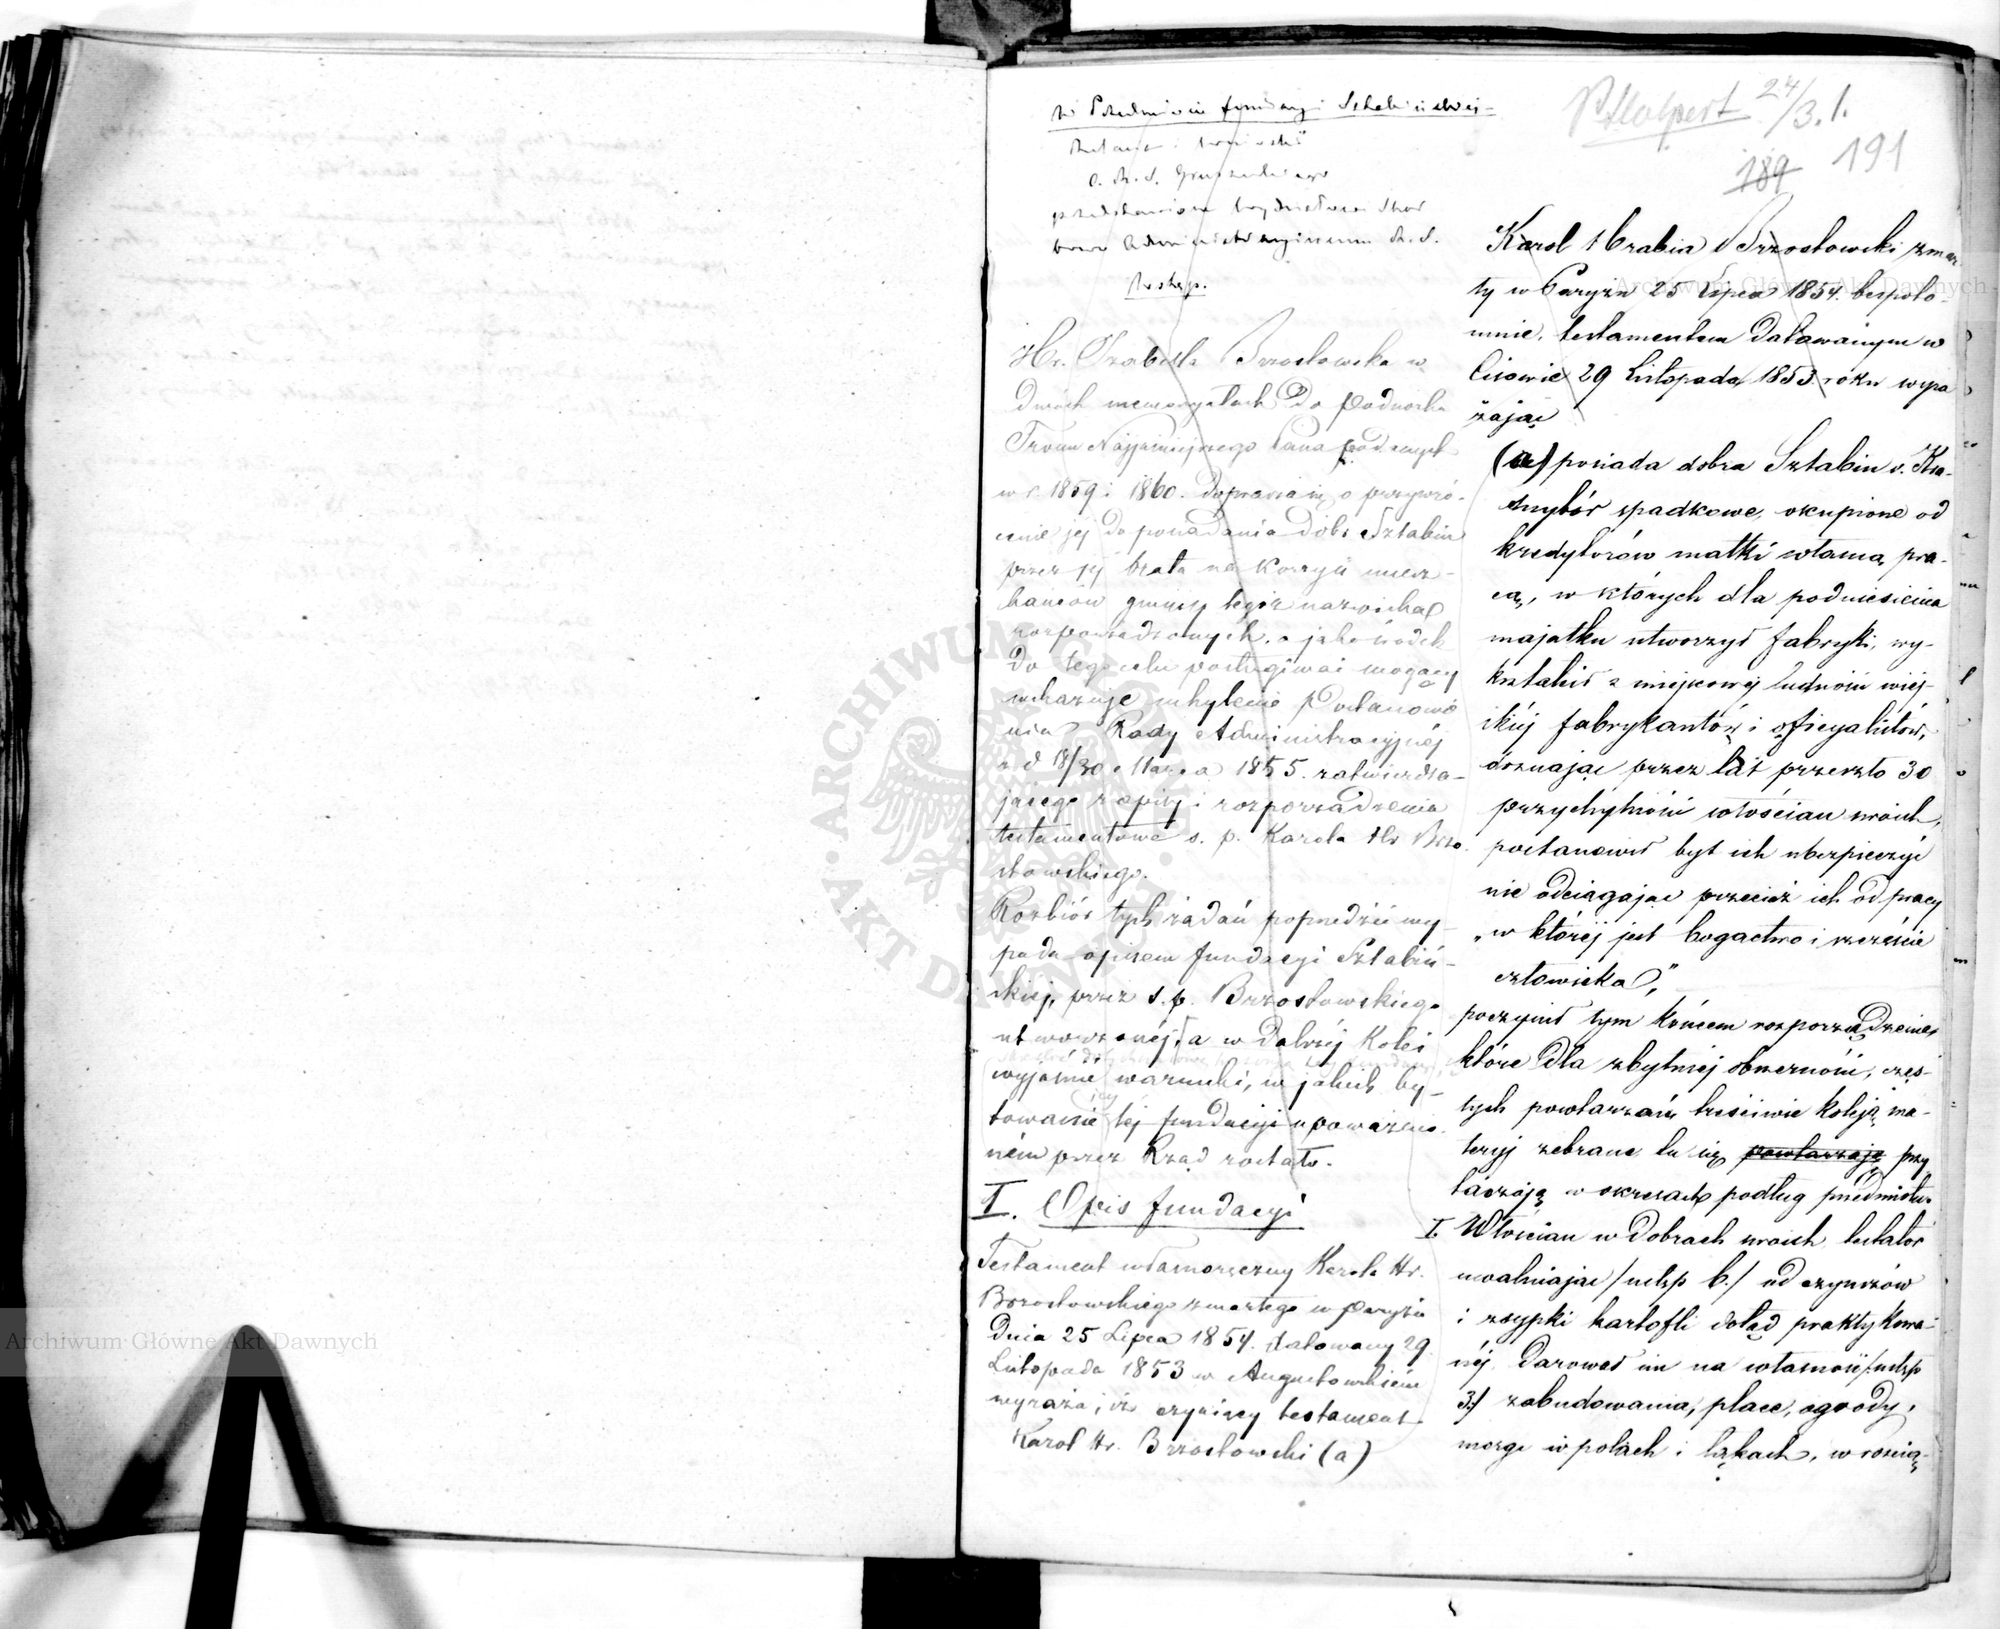 w Przedmiocie fundacyi Sztabińskiej
przedstawiona
Administracyjnemu
Wstęp.
Hr. Izabella Brzostowska w
dwóch memoryałach do Podnóżka
Tronu Najjaśniejszego Pana podanych
w r. 1859 i 1860. doprasza się o przywró-
cenie jej do posiadania dóbr Sztabin
przez jej brata na korzyść miesz-
kańców gminy tegoż nazwiska
rozporządzonych, a jako środek
do tego celu posługiwać mogący
wskazuje uchylenie Postanowie
nia Rady Administracyjnej
z d 18/30 Marca 1855. zatwierdza-
jącego zapisy i rozporządzenia
testamentowe ś. p. Karola Hr Brzo
stowskiego.
Rozbiór tych żądań poprzedzić wy-
pada opisem fundacyi Sztabiń-
skiej, przez ś. p. Brzostowskiego
utworzonej, a w dalszej kolei
wyjaśnić warunki, w jakich by-
towanie tej fundacyi upoważnio
ném przez Rząd zostało.
I. Opis fundacyi
Testament własnoręczny Karola Hr.
Brzostowskiego zmarłego w Paryżu
Dnia 25 Lipca 1854. datowany 29
Listopada 1853 w Augustowskiém
wyraża, iż czyniący testament
Karol Hr. Brzostowski (a)
24/3. 1.
189 191
Karol Hrabia Brzostowski zmar
ły w Paryżu 25 Lipca 1854. bezpoto-
mnie, testamentem datowanym w
Cisowie 29 Listopada 1853 roku wyra
żając
(a) posiada dobra Sztabin v. Kra-
snybór spadkowe, okupione od
kredytorów matki własną pra-
cą, w których dla podniesienia
majątku utworzył fabryki, wy-
kształcił z miejscowej ludności wiej-
skiej fabrykantów i oficyalistów,
doznając przez lat przeszło 30
przychylności włościan swoich,
postanowił byt ich ubezpieczyć
nie odciągając przecież ich od pracy
„w której jest bogactwo i szczęście
człowieka,”
poczynił tym końcem rozporządzenie,
które dla zbytniej obszerności, częs-
tych powtarzań treściwie koleją ma-
teryj zebrane tu się powtarzają przy
taczają w okresach podług przedmiotu.
I. Włościan w dobrach swoich testator
uwalniając /ustęp b./ od czynszów
i zsypki kartofli dotąd praktykowa-
néj darował im na własność /: ustęp
3:/ zabudowania, place, ogrody,
morgi w polach i łąkach, w rozcią-
Archiwum Główne Akt Dawnych
Archiwum Główne Akt Dawnych
ARCHIWUM GŁÓWNE AKT DAWNYCH